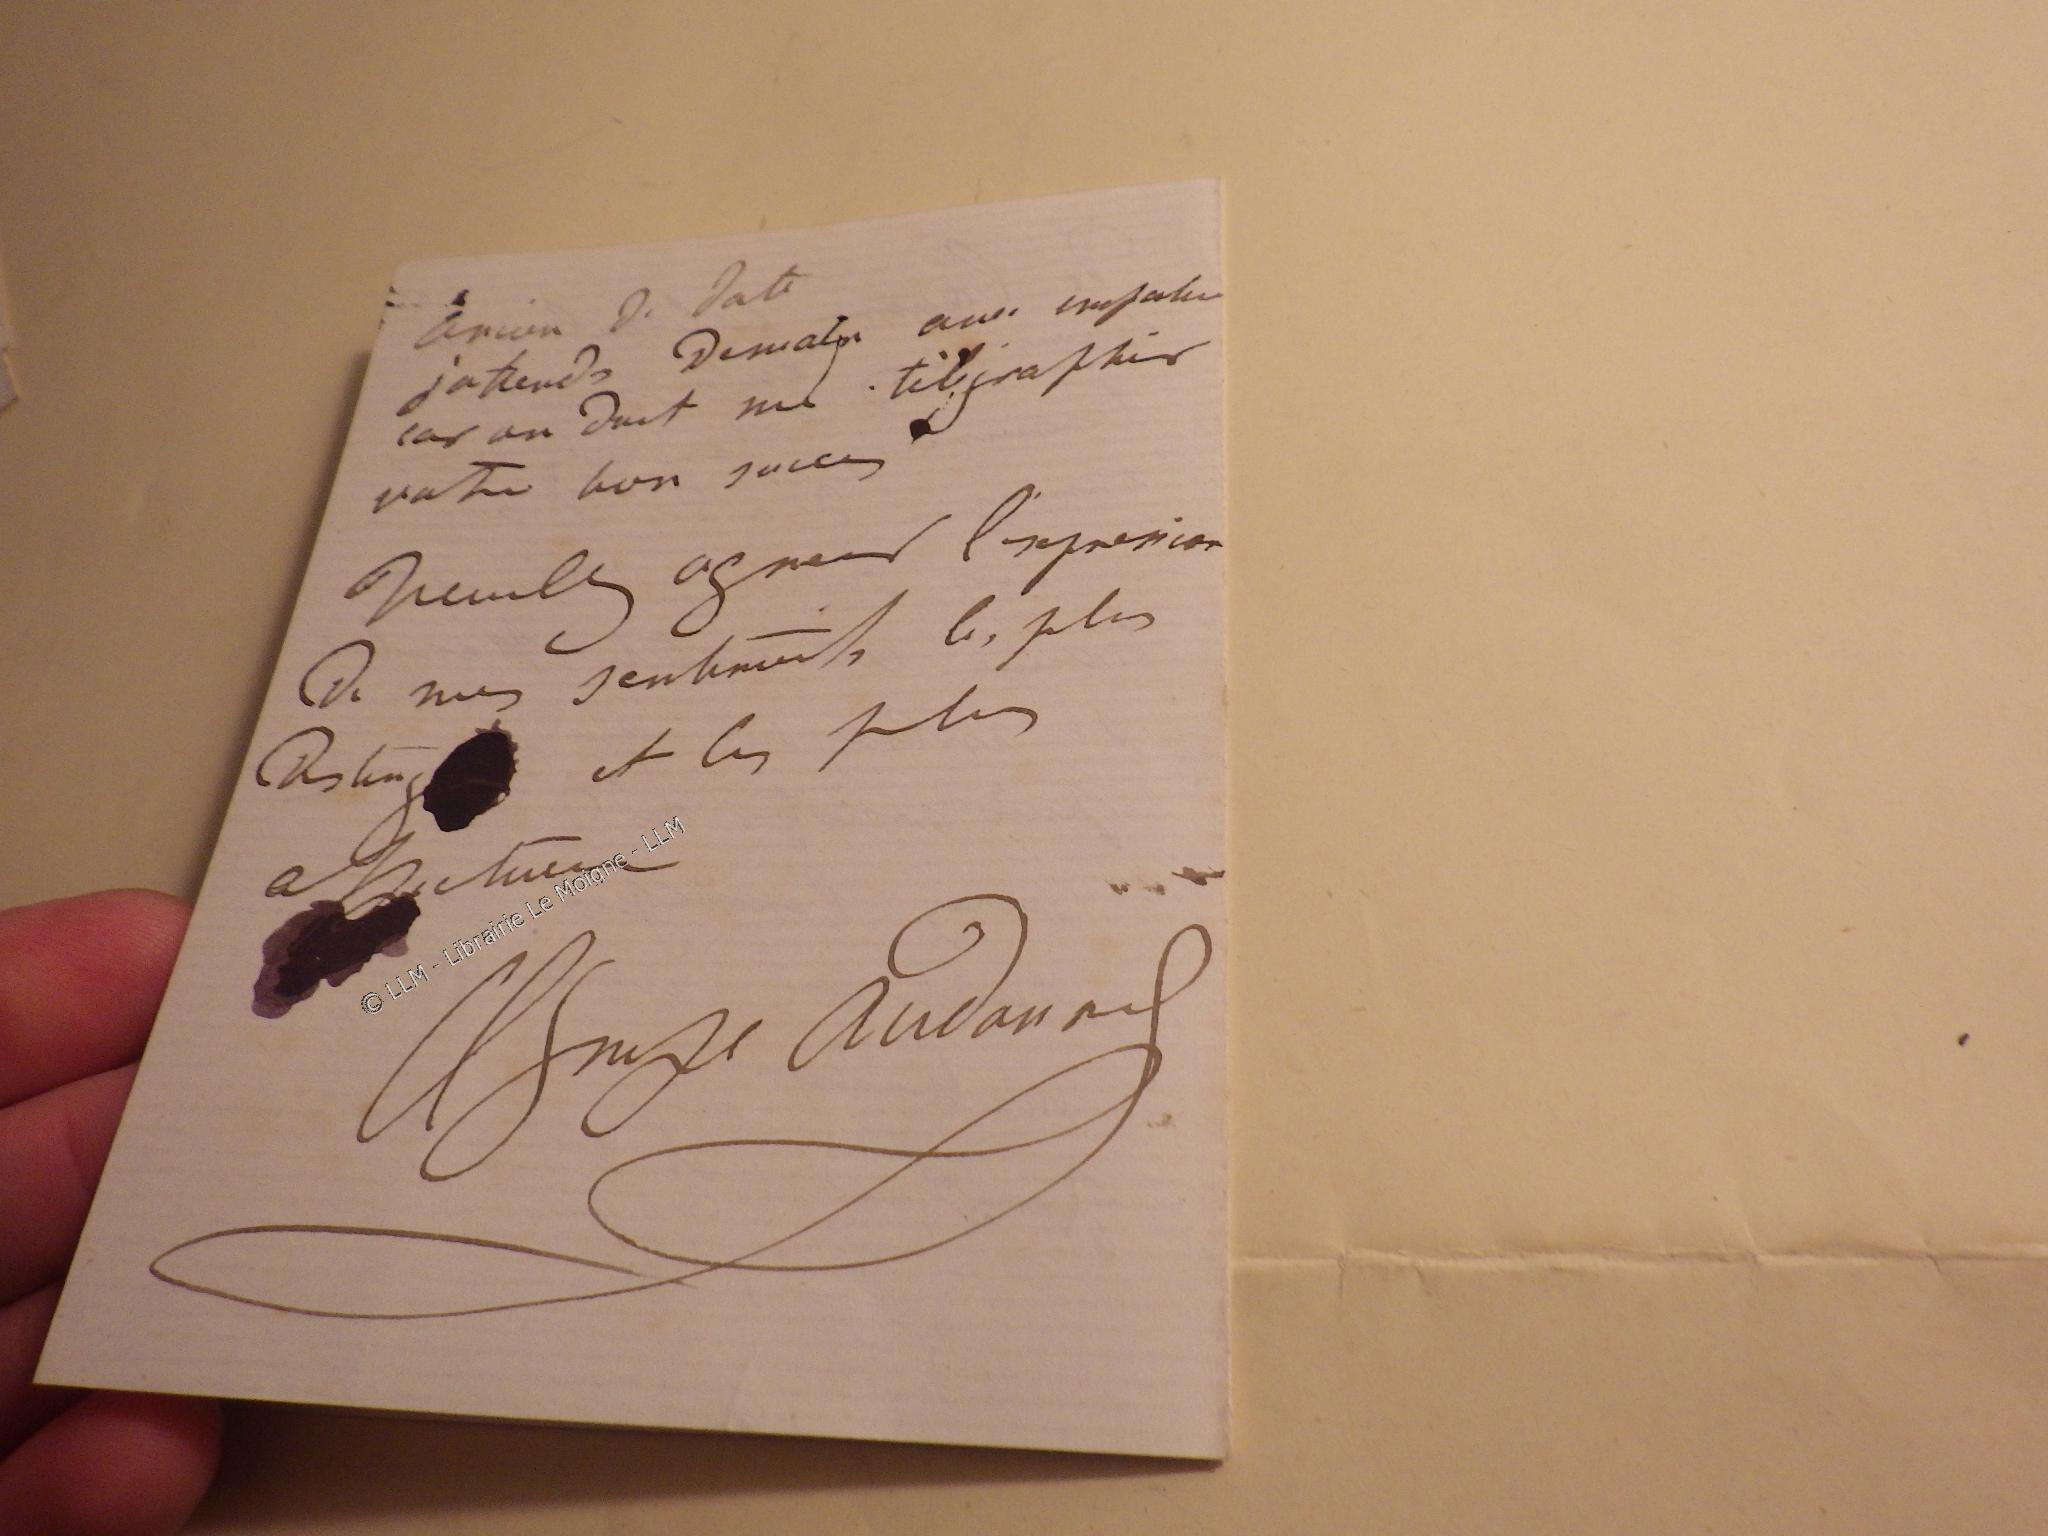 ancien de date
j'attends demain avec impatien
car on doit me télégraphier
votre bon succes
Veuillez agreer l'expression
De mes sentiments les plus
Disting et les plus
affectueux
Olympe Audouard
© LLM - Librairie Le Moigne - LLM